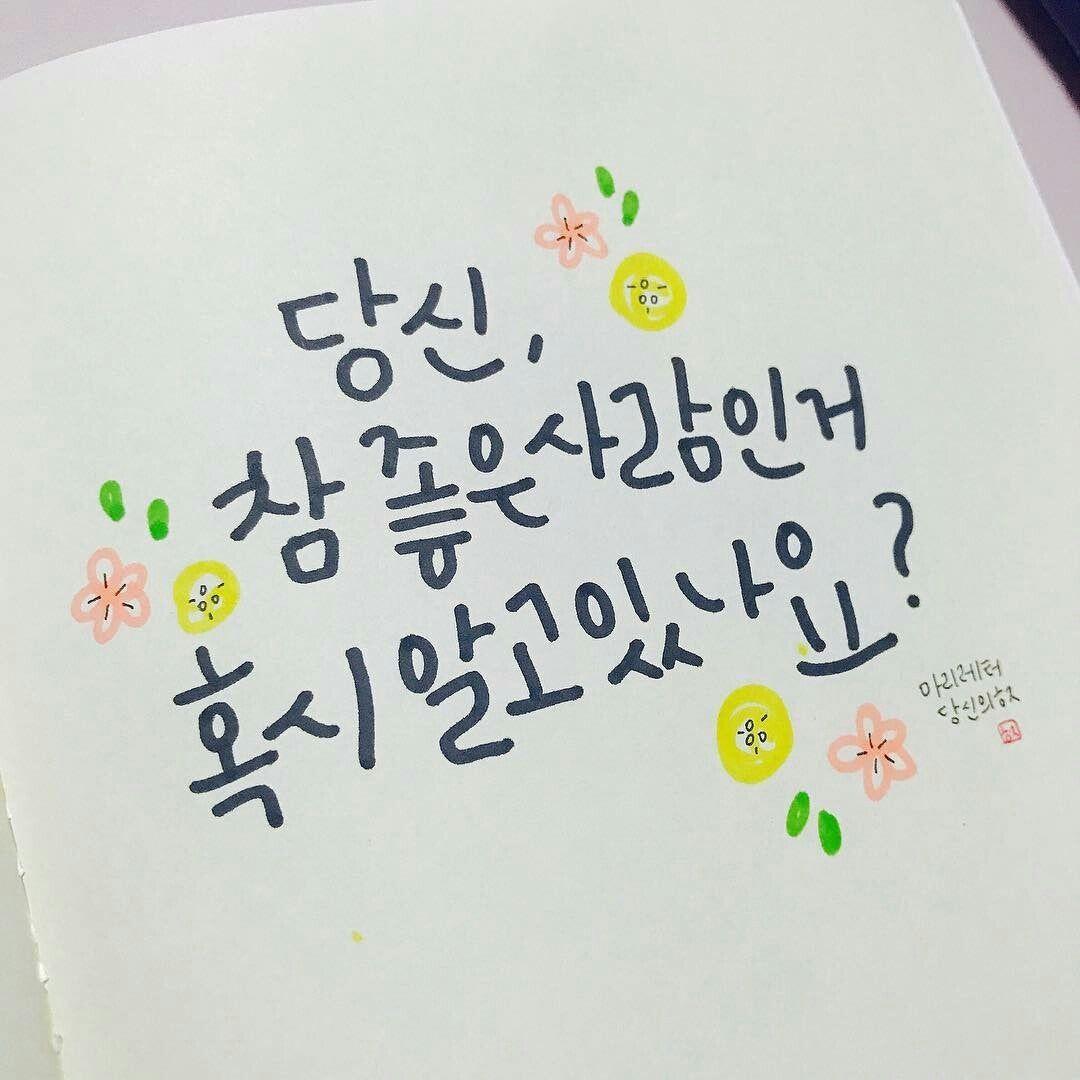 당신,
참 좋은 사람인거
혹시 알고있나요?
마리레터
당신의